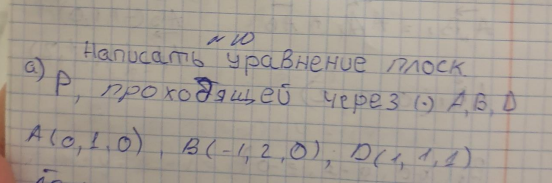 № 10
Написать уравнение плоск
а) P, проходящей через (·) A, B, D
A(0,1,0), B(-1,2,0), D(1,1,1)